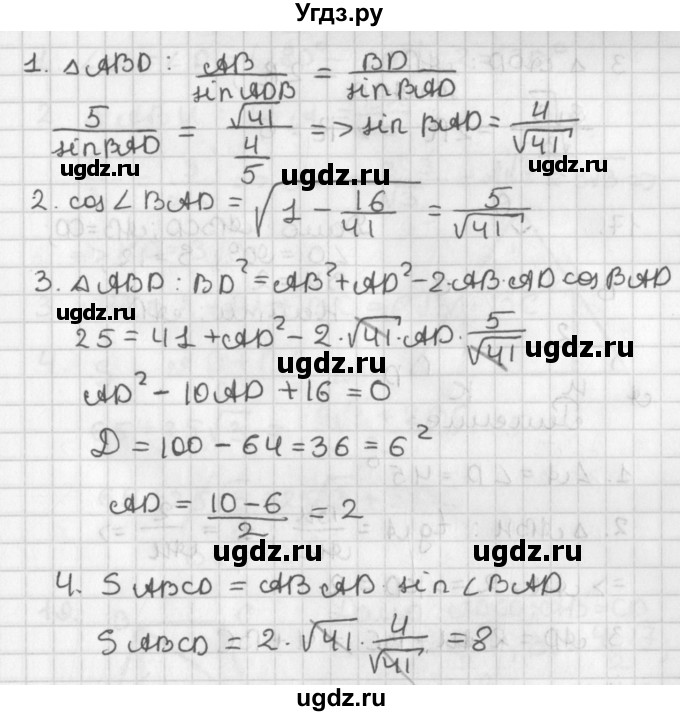 Угдз.ру
1. △ABD: AB/sin ADB = BD/sin BAD
5/sin BAD = √41/(4/5) => sin BAD = 4/√41
ugdz.ru ugdz.ru ugdz.ru
2. cos∠BAD = √(1 - 16/41) = 5/√41
3. △ABD: BD² = AB² + AD² - 2·AB·AD cos BAD
ugdz.ru ugdz.ru
25 = 41 + AD² - 2·√41·AD·5/√41
ugdz.ru
ugdz.ru
AD² - 10AD + 16 = 0
D = 100 - 64 = 36 = 6²
ugdz.ru
AD = (10-6)/2 = 2
ugdz.ru ugdz.ru
4. SABCD = AB·AD sin∠BAD
ugdz.ru
SABCD = 2·√41·4/√41 = 8
ugdz.ru ugdz.ru
ugdz.ru